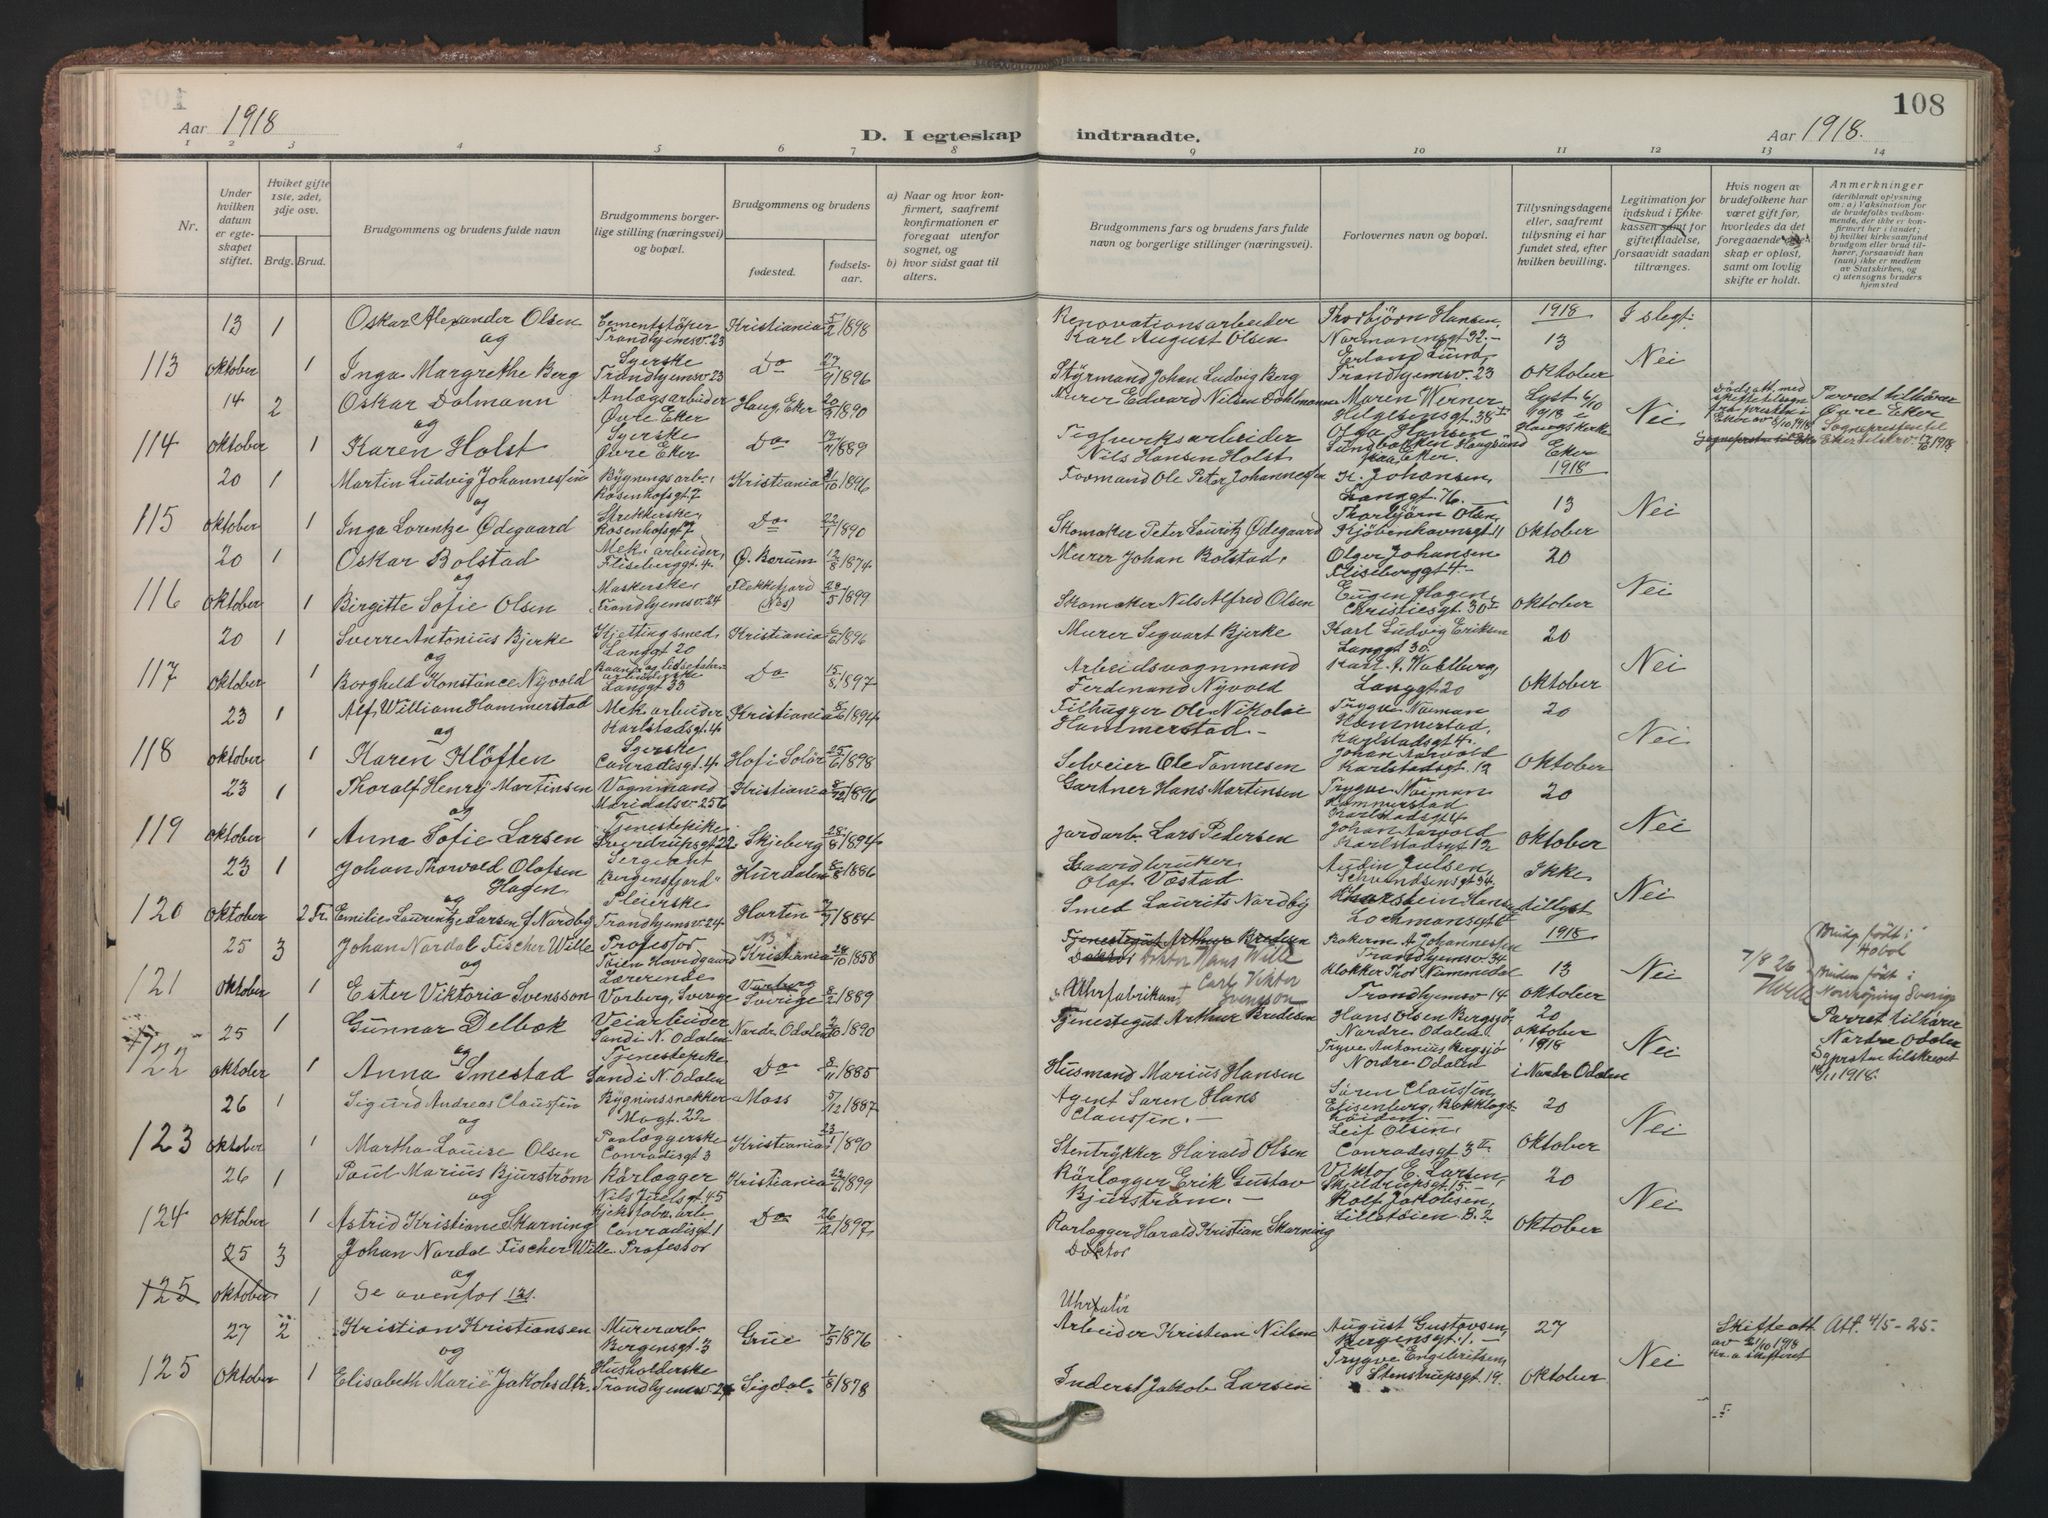 108
Aar 1918
D. I egteskap indtraadte.
Aar 1918.
1 2 3 4 5 6 7 8 9 10 11 12 13 14
Nr.
Under hvilken datum er egteskapet stiftet.
Hviket gifte 1ste, 2det, 3dje osv.
Brdg. Brud.
Brudgommens og brudens fulde navn
Brudgommens borgerlige stilling (næringsvei) og bopæl.
Brudgommens og brudens
fødested.
fødselsaar.
a) Naar og hvor konfirmert, saafremt konfirmationen er foregaat utenfor sognet, og
b) hvor sidst gaat til alters.
Brudgommens fars og brudens fars fulde navn og borgerlige stillinger (næringsvei).
Forlovernes navn og bopæl.
Tillysningsdagene eller, saafremt tillysning ei har fundet sted, efter hvilken bevilling.
Legitimation for indskud i Enkekassen samt for giftetilladelse, forsaavidt saadan tiltrænges.
Hvis nogen av brudefolkene har været gift før, hvorledes da det foregaaende egteskap er opløst, samt om lovlig skifte er holdt.
Anmerkninger (deriblandt oplysning om: a) Vaksination for de brudefolks vedkommende, der ikke er konfirmert her i landet; b) hvilket kirkesamfund brudgom eller brud tilhører, forsaavidt han (hun) ikke er medlem av Statskirken, og c) utensogns bruders hjemsted
113 13 oktober 1 Oskar Alexander Olsen Cementstöper Trondhjemsv. 23 Kristiania 5/2 1898 Renovationsarbeider Karl August Olsen Thorbjörn Hansen, Normannsgt 32. 1918 13 I slegt:
og
1 Inga Margrethe Berg Syerske Trondhjemsv. 23 Do 27/9 1896 Styrmand Johan Ludvig Berg Erland Lund, Trondhjemsv. 23 oktober Nei
114 14 oktober 2 Oskar Dalmann Anlægsarbeider Øvre Eker Haug, Eker 20/3 1890 Murer Edvard Nilsen Dahlmann Maren Werner Helgesensgt 38 Lyst 6/10 1918 i Haugs kirke Nei Parret tilhører Øvre Eker
og
1 Karen Holst Syerske Øvre Eker Do 1889 Teglverksarbeider Nils Hansen Holst Olga Hansen Eker
115 20 oktober 1 Martin Ludvig Johannessen Bygningsarb., Rosenhofsgt. 7 Kristiania 1896 Formand Ole Peter Johannessen K. Johansen, Langgt. 76. 1918 13
og
1 Inga Lorentze Ødegaard Strikkerske, Rosenhofsgt 7 Do 22/7 1890 Skomaker Peter Lauritz Ødegaard Thorbjörn Olsen, Kjöbenhavnsgt. 11 oktober Nei
116 20 oktober 1 Oskar Bolstad Mek. arbeider, Fliseberggt. 4. Ø. Bærum 12/8 1874 Murer Johan Bolstad, Olger Johansen Fliseberggt 4. 20
og
1 Birgitte Sofie Olsen Maskerske, Trondhjemsv. 24 Flekkefjord (Nes) 20/5 1899 Skomaker Nils Alfred Olsen Eugen Hagen, Christiesgt. 30 oktober Nei
117 20 oktober 1 Sverre Antonius Bjerke Kjettingsmed, Langgt 20 Kristiania 6/6 1896 Murer Sigvart Bjerke Karl Ludvig Eriksen Langgt 30. 20
og
1 Borghild Konstance Nyvold Langgt 33 Do 15/8 1897 Arbeidsvognmand Ferdinand Nyvold Karl A. Wahlberg, Langgt 20 oktober Nei
118 23 oktober 1 Alf William Hammerstad Mek. arbeider Karlstadsgt. 4 Kristiania 8/6 1894 Filhugger Ole Nikolai Hammerstad. Trygve Neiman Hammerstad, Karlstadsgt 4. 20
og
1 Karen Klöften Syerske Conradisgt. 4 Hof i Solör 25/6 1898 Selveier Ole Tannesen Johan Aarvold Karlstadsgt. 12 oktober Nei
119 23 oktober 1 Thoralf Henry Martinsen Vognmand Maridalsv. 256 Kristiania 8/12 1896 Gartner Hans Martinsen Trygve Neiman Hammerstad Karlstadsgt 4 20
og
1 Anna Sofie Larsen Tjenestepike Sverdrupsgt 22. Skjeberg 28/8 1894 Jordarb. Lars Pedersen Johan Aarvold Karlstadsgt 12 oktober Nei
120 23 oktober 1 Johan Thorvald Olafsen Hagen Sergeant Bergensfjord Hurdalen 8/8 1886 Gaardbruker Olaf Væstad Audin Julsen, Schvendsensgt 34. Ikke
og
2 Fr. Emilie Laurentze Larsen f Nordby Pleierske Trondhjemsv. 24 Horten 7/7 1884 Smed Laurits Nordby Kharstein Hansen Lochmansgt 6 tillyst Nei
121 25 oktober 3 Johan Nordal Fischer Wille Professor Töien Hovedgaard Kristiania 28/10 1858 Tjenestegut Arthur Bredesen Doktor Doktor Hans Wille Bakerm. A. Johannessen Trondhjemsv 34 1918 13 Brudg födt i Hobol
og
1 Ester Viktoria Svensson Lærerinde Varberg, Sverige Varberg Sverige 8/2 1889 Uhrfabrikant Carl Viktor Svensson Klokker Thor Nummedal Trondhjemsv 14 oktober Nei 7/8 26 Wille Bruden födt i Norrköping Sverige
122 25 oktober 1 Gunnar Delbæk Veiarbeider Sand i N. Odalen Nordre Odalen 2/10 1890 Tjenestegut Arthur Bredesen Hans Olsen Bergsjö Nordre Odalen 20 oktober 1918 Parret tilhører Nordre Odalen
og
1 Anna Smestad Tjenestepike Sand i N. Odalen Do 8/11 1885 Husmand Marius Hansen Tryve Antonius Bergsjö Nordre Odalen i Nordr Odalen Nei
123 26 oktober 1 Sigurd Andreas Claussen Bygninssnekker Magt. 22 Moss 5/12 1887 Agent Søren Hans Claussen. Søren Claussen, Elisenberg, 20
og
1 Martha Louise Olsen Paalæggerske Conradisgt 3 Kristiania 23/1 1890 Stentrykker Harald Olsen Leif Olsen, Conradisgt 3 II oktober Nei
124 26 oktober 1 Paul Marius Bjurström Rörlægger Nils Juelsgt. 45 Kristiania 22/6 1899 Rörlægger Erik Gustav Bjurström. Viktor E. Larsen, Skjeldrupsgt. 15. 20
og
1 Astrid Kristiane Skarning Conradisgt. 1 Do 26/12 1897 Rorlægger Harald Kristian Skarning Rolf Jakobsen, Lilletöien B. 2 oktober Nei
125 25 oktober 3 Johan Nordal Fischer Wille Professor Doktor
og
1 Se ovenfor 121.
125 27 oktober 2 Kristian Kristiansen Murerarb. Bergensgt. 3 Grue 7/5 1876 Arbeider Kristian Nilsen August Gustavsen, Bergensgt. 1. 27 Skifteatt. av 2/10 1918 Kr.a skifteret Att. 4/5-25.
og
1 Elisabeth Marie Jakobsdtr. Husholderske Trondhjemsv. 24 Sigdal 1/8 1878 Inderst Jakob Larsen Trygve Engebritsen, Stenstrupsgt. 19. oktober Nei